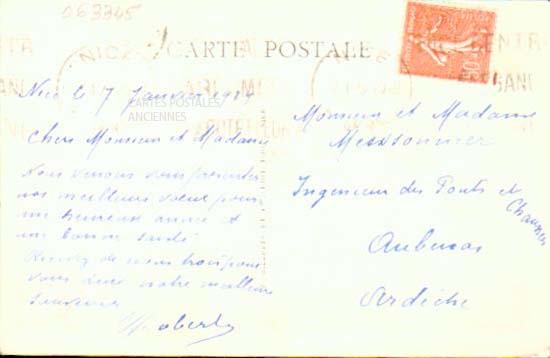 063345
CARTE POSTALE
NICE
CENTRE
Nice le 7 Janvier
CARTES POSTALES
ANCIENNES
Chers Monsieur et Madame
Nous venons vous presenter
nos meilleurs voeux pour
une heureuse année et
une bonne santé
Recevez de nous trois pour
vous deux notre meilleur
souvenir
Robert
Monsieur et Madame
Messonnier
Ingenieur des Ponts et
Chaussées
Aubenas
Ardèche